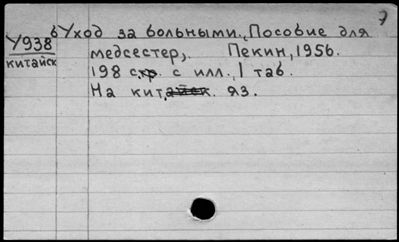 7
бУход за больными. Пособие для
У938
китайск
медсестер,. Пекин, 1956.
198 стр. с илл., 1 таб.
На китайск. яз.